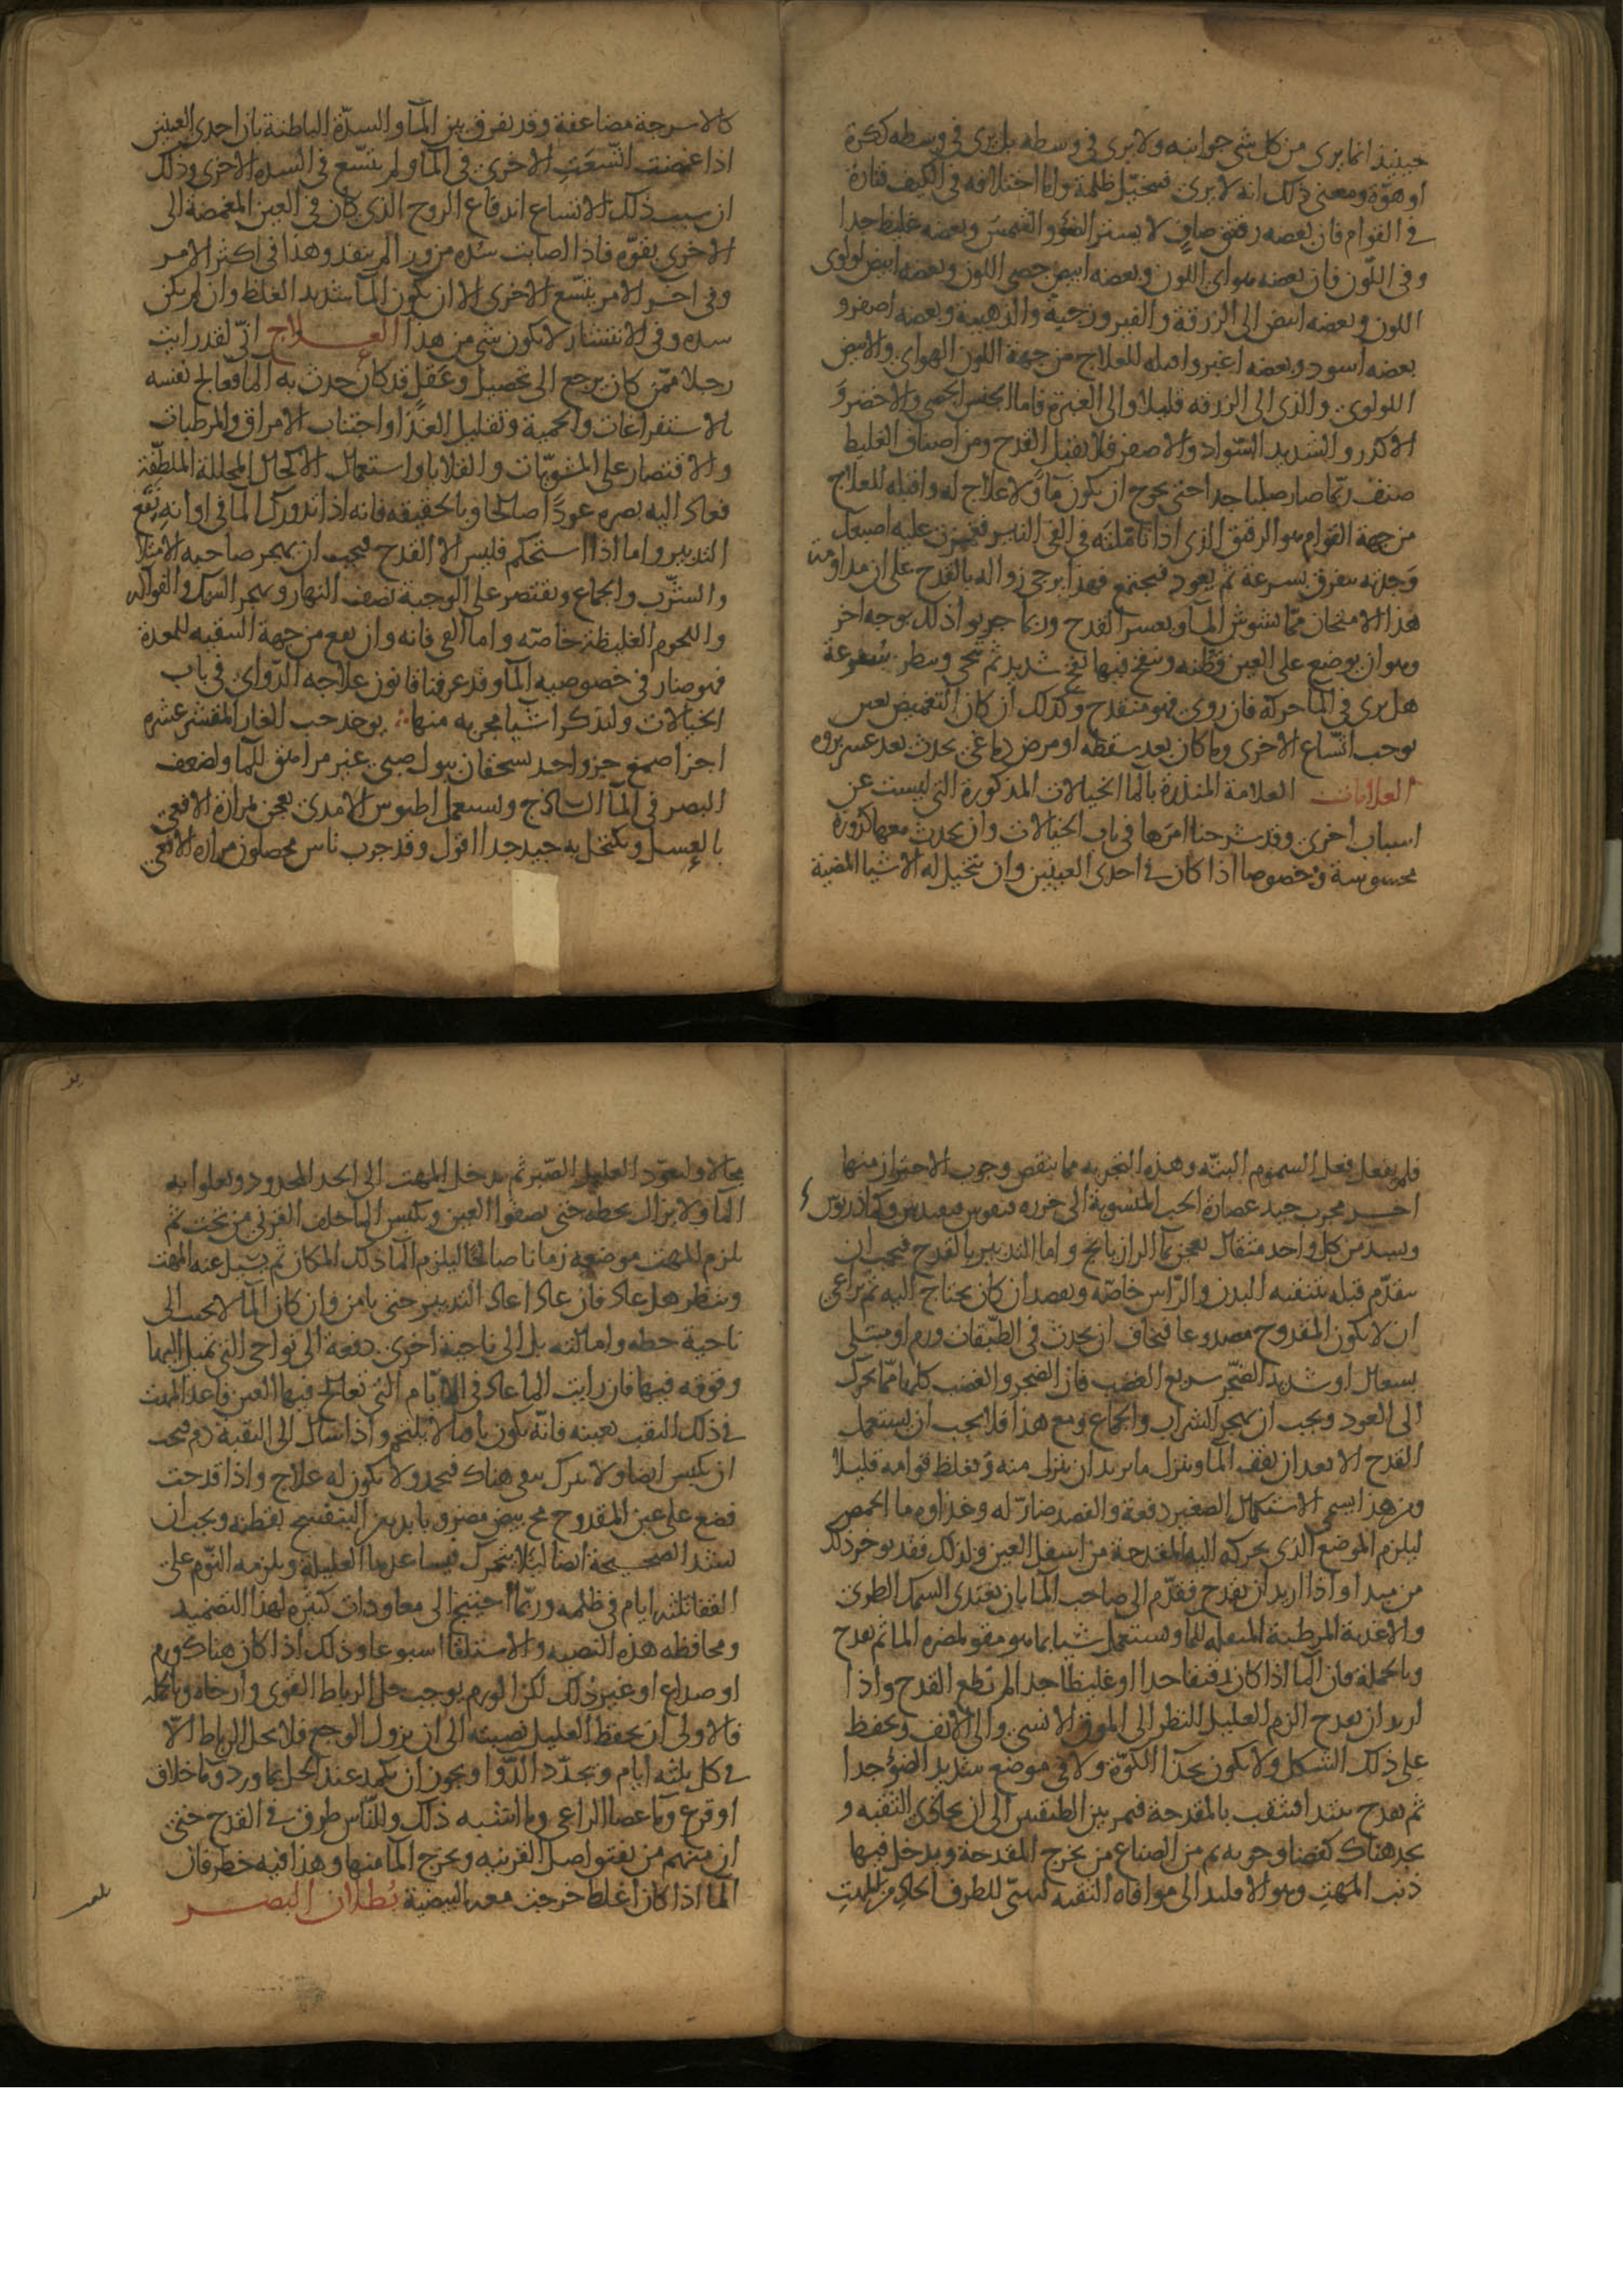 حينئذ انما يرى من كل شي جوانبه ولا يرى في وسطه بل يرى في وسطه ككرة
او هوّة ومعنى ذلك انه لا يرى فيتخيّل ظلمة واما اختلافه في الكيف فتارة
في القوام فان بعضه رقيق صافٍ لا يستر الضوء والشمس وبعضه غليظ جدا
وفى اللّون فان بعضه هواى اللون وبعضه ابيض جصى اللون وبعضه ابيض لولوى
اللون وبعضه ابيض الى الزرقة والفيروزجية والذهبية وبعضه اصفر و
بعضه اسود وبعضه اغبر واقبله للعلاج من جهة اللون الهواى والابيض
اللولوى والذى الى الزرقه قليلا والى الغبرة فاما الجبس الجصى والاخضر وَ
الاكدر والشديد السّواد والاصفر فلا يقبل القدح ومن اصناف الغليظ
صنف ربّما صار صلبا جدا حتى يخرج ان يكون مآءً ولا علاج له واقبله للعلاج
من جهة القوام هو الرقيق الذى اذا تاملته فى الفى النير فغمزت عليه اصبعك
وَجدته يتفرق بسرعة ثم يعود فيجتمع فهذا يرجى زواله بالقدح على ان مداومة
هذا الامتحان ممّا يشوش المآ ويعسر القدح وربما جربوا ذلك بوجه اخر
وهو ان يوضع على العين قطنه وينفخ فيها نفخ شديد ثم تنحى وينظر بسُرعة
هل يرى فى المآ حركة فان روى فهو منقدح وكذلك ان كان التغميض لعين
يوجب اتّساع الاخرى وما كان بعد سقطه او مرض دماغى يحدث بعد عسر بروه
العلامات العلامة المنذرة بالمآ الخيالات المذكورة التى ليست عن
اسباب اخرى وقد شرحنا امرَها فى باب الخيالات وان يحدث معها كدورة
محسوسة وخصوصا اذا كان فى احدى العينين وان تتخيل له الاشيا المضية
كالاسرجة مضاعفة وقد يفرق بين المآ والسدّة الباطنة بان احدى العينين
اذا غمضت اتّسعَتِ الاخرى فى المآ ولم يتسّع فى السده الاخرى وذلك
ان سبب ذلك الاتساع اندفاع الروح الذى كان فى العين المغمضة الى
الاخرى بقوّه فاذا اصابت سُده من ورا لم ينفذ وهذا فى اكثر الامر
وفى اخر الامر يتسّع الاخرى الا ان يكون المآ شديد الغلظ وان لم يكن
سده وفى الانتشار لا يكون شى من هذا العلاج انّى لقد رايت
رجلا ممّن كان يرجع الى تحصيل وعَقل قد كان حدث به المآ فعالج نفسه
بالاستفراغات والحمية وتقليل الغذا واجتناب الامراق والمرطبات
والاقتصار على المشويّات والقلايا واستعمال الاكحال المحللة الملطّفة
فعاد اليه بصره عودًا صالحا وبالحقيقه فانه اذا تدورك المآ فى اوانه نفع
التدبير واما اذا استحكم فليس الا القدح فيجب ان يهجر صاحبه الامتلا
والشّرب والجماع ويقتصر على الوجبة نصف النهار ويهجر السمك والفواكه
واللحوم الغليظة خاصّه واما القى فانه وان نفع من جهة التنقيه للمعدة
فهو ضار فى خصوصيه المآ وقد عرفنا قانون علاجه الدّواى فى باب
الخيالات ولنذكر اشيا مجربه منها يوخذ حب الغار المقشر عشره
اجزا صمغ جزو احد يسحقان ببول صبى غير مراهق للمآ ولضعف
البصر فى المآ الساذج ويستعمل اطيوس الامدى يعجن بمرارة الافعى
بالعسل ويكتحل به جيد جدا اقول وقد جرب ناس محصلون مراره الافعى
فلم يفعل فعل السموم البتّه وهذه التجربه مما ينقص وجوب الاحتراز منها
اخـر مجرب جيد عصارة الحب المنسوبة الى
من كل واحد مثقال يعجن بمآ الرازيانج واما التدبير بالقدح فيجب ان
يتقدّم قبله بتنقيه البدن والرّاس خاصّه ويفصد ان كان يحتاج اليه ثم يراعى
ان لا يكون المقدوح مصدوعا فيخاف ان يحدث فى الطّبقات ورم او مبتلى
بسعال او شديد الضّجر سريع الغضب فان الضجر والغضب كليهما ممّا يحرّك
الى العود ويجب ان يهجر الشراب والجماع ومع هذا فلا يجب ان يستعمل
القدح الا بعد ان يقف المآ وينزل ما يريد ان ينزل منه وَيغلظ قوامه قليلا
ومن هذا يسمى الاستكمال الصغير دفعة والفصد ضارّ له وغذاوه ما الحمص
ليلزم الموضع الذى يحركه اليه المقدحة من اسفل العين ولذلك فقد يوخر ذلك
من مبداو اذا اريد ان يقدح فيقدّم الى صاحب المآ بان يغتذى السمك الطرى
والاغذية المرطبة المثقله للمآ ويستعمل شيا مما هو مقو لمضره المآ ثم يقدح
وبالجملة فان المآ اذا كان رقيقا جدا او غليظا جدا لم يطع القدح واذا
اريد ان يقدح الزم العليل النظر الى الموق الانسى والى الانف ويحفظ
على ذلك الشكل ولا يكون بحذآ الكوّة ولا فى موضع شديد الضوء جدا
ثم يقدح يبتدا فيثقب بالمقدحة فيمر بين الطبقتين الى ان يحاذى الثقبه و
يجد هناك كفضا وجوبه ثم من الصناع من يخرج المقدحة ويدخل فيها
ذنب المهت وهو الاقليد الى موافاه الثقبه ليهيّى للطرف الحاد من المهت
مجالا وليعوّد العليل الصّبر ثم يدخل المهت الى الحد المحدود ويعلوا به
المآ ولا يزال يحطه حتى يصفوا العين ويكبس المآ خلف القرنى من تحت ثم
يلزم المهت موضعه زمانا صالحا ليلزم المآ ذلك المكان ثم يشيل عنه المهت
وينظر هل عاد فان عاد اعاد التدبير حتى يامن وان كان المآ لا يجيب الى
ناحية حطه وامالته بل الى ناحية اخرى دفعه الى نواحى التى تميل اليها
وفرقه فيها فان رايت المآ عاد فى الايّام التى تعالج فيها العين فاعد المهت
فى ذلك الثقب بعينه فانّه يكون باقيا لا يلتحم واذا سال الى الثقبة دم فيجب
ان يكبس ايضا ولا يترك يبقى هناك فيجمد ولا يكون له علاج واذا قدحت
فضع على عين المقدوح مح بيض مضروبا بدهن البنفسج بقطنه ويجب ان
يشد الصحيحة ايضا ليلا يتحرك فيساعدها العليلة ويلزمه النوم على
القفا ثلثه ايام فى ظلمه وربّما احتيج الى معاودات كثيره لهذا التضميد
ومحافظه هذه النصبه والاستلقا اسبوعا وذلك اذا كان هناك ورم
او صداع او غير ذلك لكن الورم يوجب حل الرباط القوى وارخاه وبالجملة
فالاولى ان يحفظ العليل نصبته الى ان يزول الوجع فلا يحل الرباط الّا
فى كل ثلثه ايام ويجدّد الدّوا ويجوز ان يكمد عند الحل بماورد وما خلاف
او قرع وما عصا الراعى وما اشبه ذلك وللنّاس طرق فى القدح حتى
ان منهم من يفتق اصل القرنيه ويخرج المآ منها وهذا فيه خطر فان
المآ اذا كان اغلظ خرجت معه البيضية بُطلان البصـر